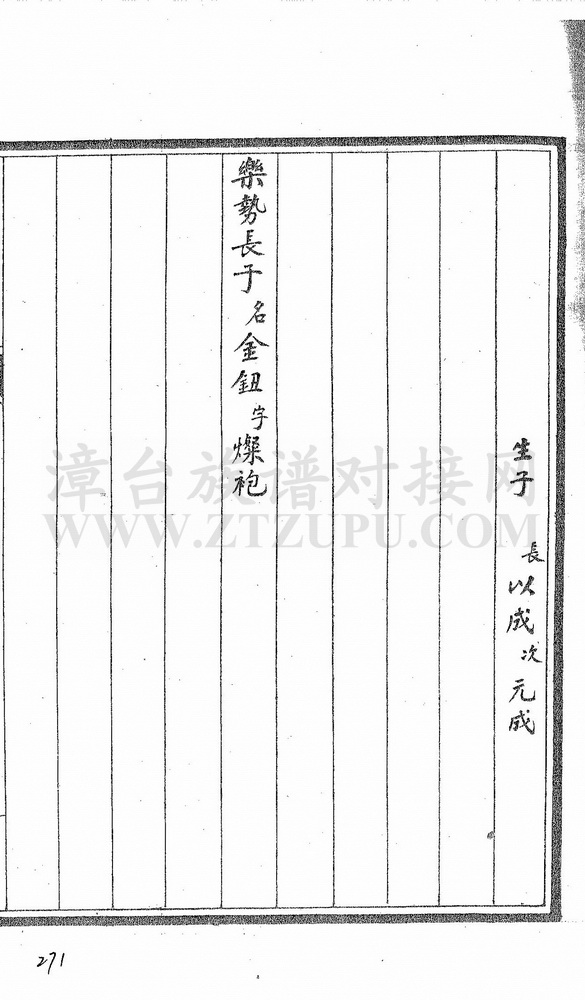 生子 長以成 次元成
樂勢長子名金鈕字燦袍
漳台族谱对接网
WWW.ZTZUPU.COM
271